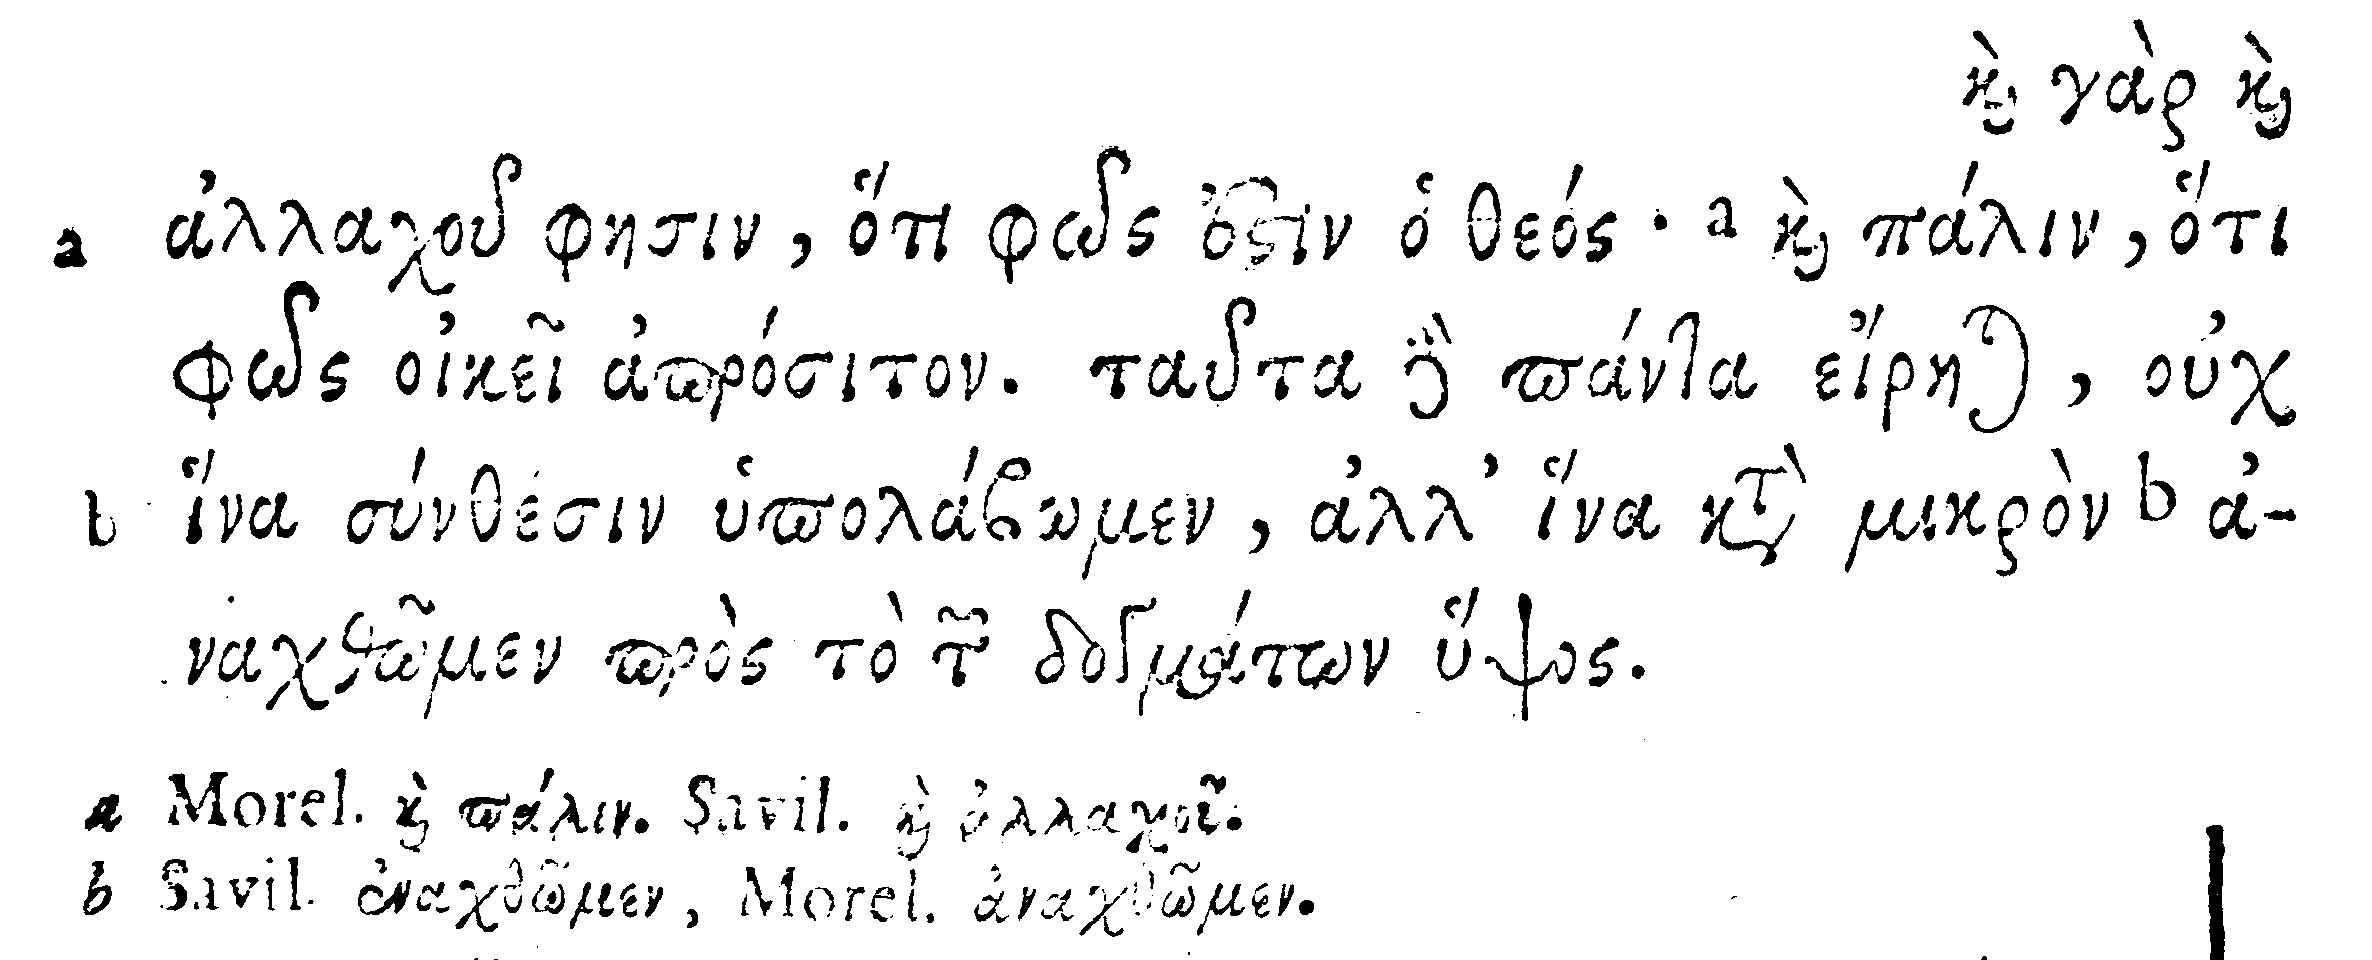 ϗ̀ γὰρ ϗ̀
a ἀλλαχοῦ φησιν, ὅτι φῶς ἐςιν ὁ θεός· a ϗ̀ πάλιν, ὅτι
φῶς οἰκεῖ ἀπρόσιτον. ταῦτα ὃ πάντα εἴρηται, οὐχ
b ἵνα σύνθεσιν ὑπολάβωμεν, ἀλλ' ἵνα κατὰ μικρὸν b ἀ-
ναχθῶμεν πρὸς τὸ τῶν δογμάτων ὕψος.
a Morel. ϗ̀ πάλιν. Savil. ϗ̀ ἀλλαχοῦ.
b Savil. ἐναχθῶμεν, Morel. ἀναχθῶμεν.